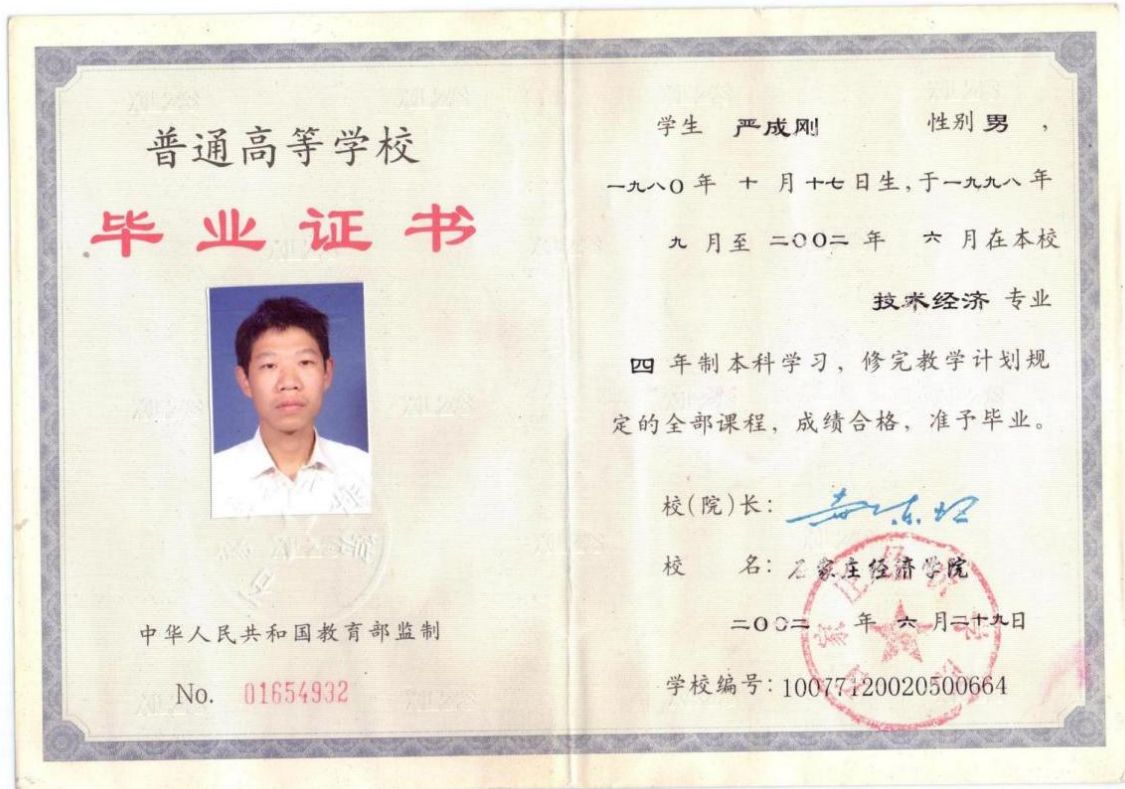 普通高等学校
毕业证书
中华人民共和国教育部监制
No. 01654932
学生 严成刚 性别 男，
一九八〇年 十 月十七日生，于一九九八年
九 月至 二〇〇二 年 六 月在本校
技术经济 专业
四 年制本科学习，修完教学计划规
定的全部课程，成绩合格，准予毕业。
校(院)长：
校 名：石家庄经济学院
二〇〇二 年 六 月二十九日
学校编号：10077120020500664